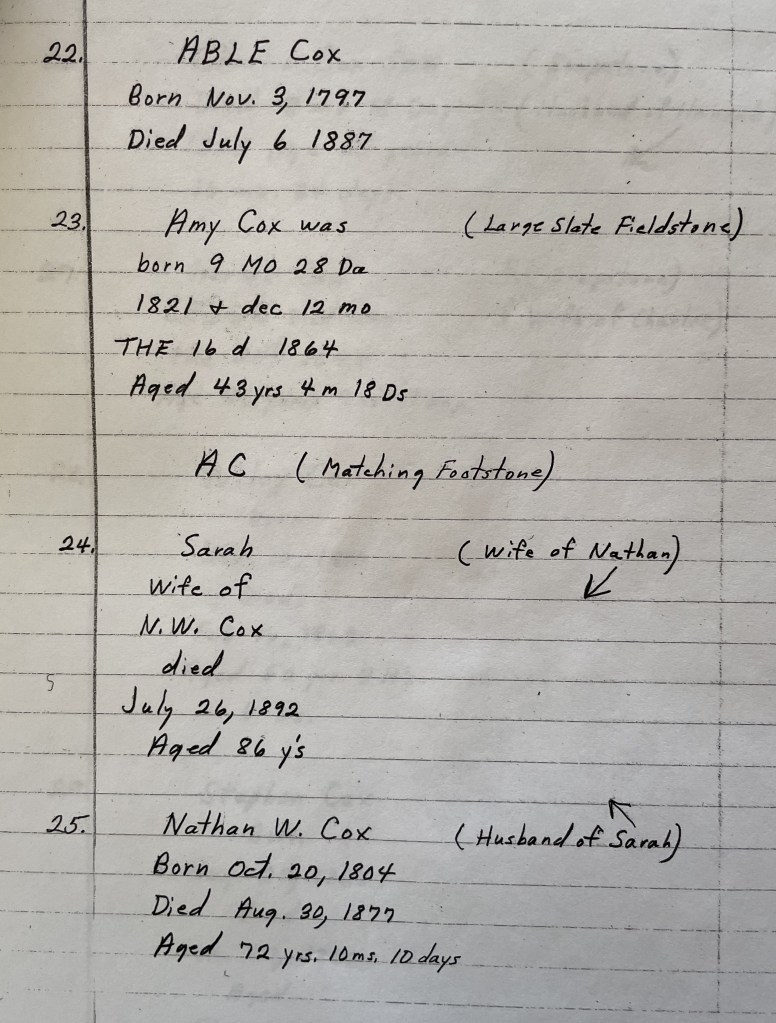 22. ABLE Cox
Born Nov. 3, 1797
Died July 6 1887
23. Amy Cox was (Large Slate Fieldstone)
born 9 MO 28 Da
1821 & dec 12 mo
THE 16 d 1864
Aged 43 yrs 4 m 18 Ds
A C (Matching Footstone)
24. Sarah (Wife of Nathan)
Wife of
N. W. Cox
died
5
July 26, 1892
Aged 86 y's
25. Nathan W. Cox (Husband of Sarah)
Born Oct. 20, 1804
Died Aug. 30, 1877
Aged 72 yrs. 10 ms. 10 days